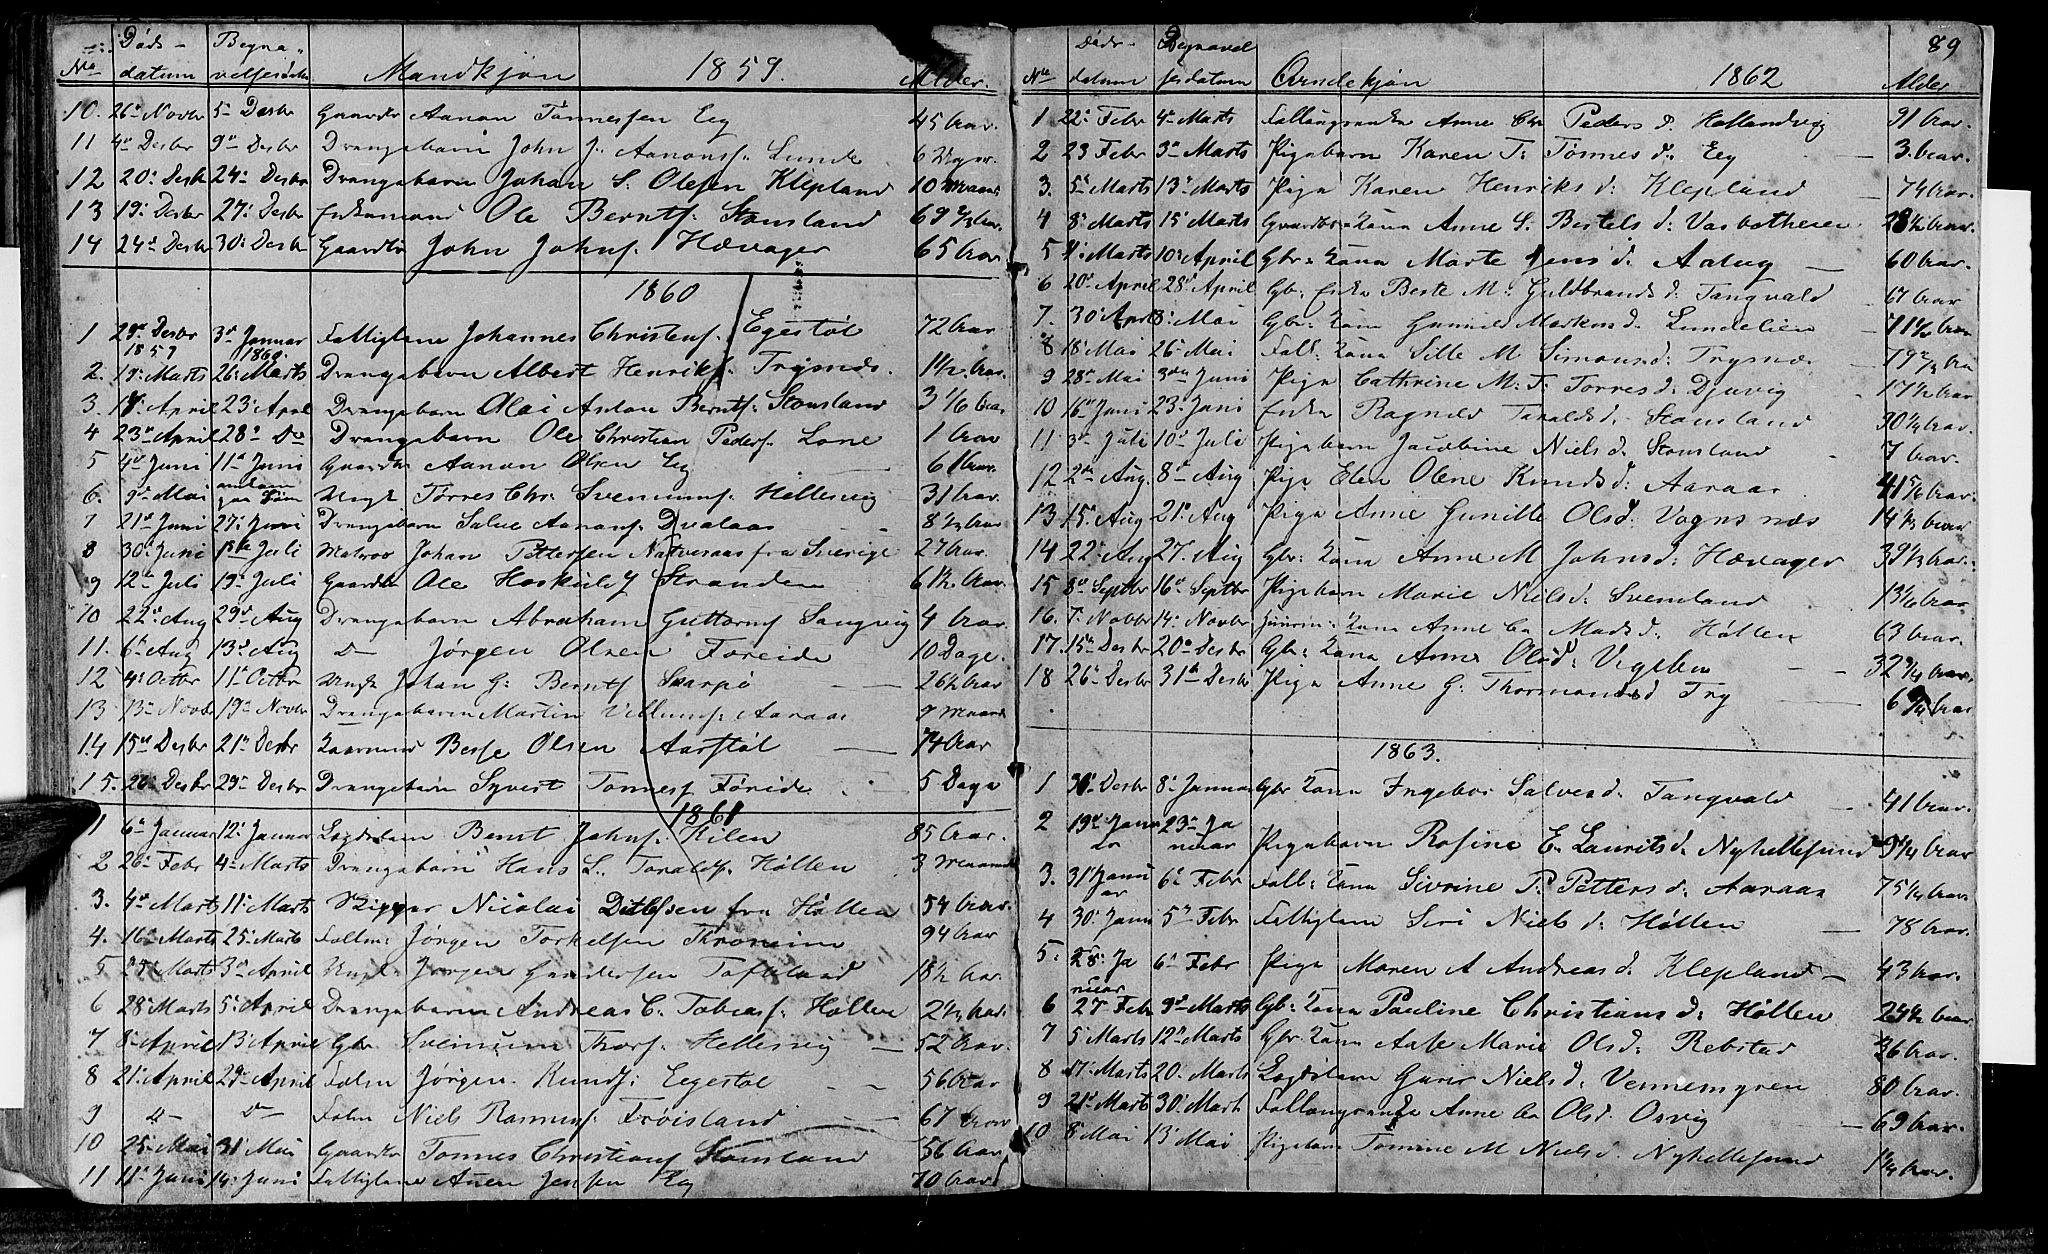 No Døds-datum Begravelsesdatum Mandkjøn 1859. Alder.
10. 26 Novbr 5 Desbr Gaardbr Aanon Tønnessen Eeg 45 Aar.
11 4 Desbr 9 Desbr Drengebarn John J. Aanonsf. Lunde 6 Uger.
12 20 Desb 24 Desbr Drengebarn Johan S. Olesen Klepland 10 Maand
13 19 Desbr 27 Desbr Enkemand Ole Berntsf. Stousland 69 Aar.
14 24 Desbr 30 Desbr Gaardbr John Johnsf. Hævager 65 Aar.
1860
1 29 Desbr 1859 3 Januar 1860. Fattiglem Johannes Christensf. Egestøl 72 Aar
2. 19 Marts 26 Marts Drengebarn Albert Henriksf. Trysnes. 1 1/2 Aar.
3. 18 April 23 April Drengebarn Olai Anton Berntsf. Stousland 3 1/6 Aar
4 23 April 28 Do Drengebarn Ole Christian Pedersf. Lone 1 Aar
5 4 Juni 11 Juni Gaardbr Aanon Olsen Eeg 61 Aar.
6. 9 Mai Ungk Tørres Chr. Svenumsf. Hellesvig 31 Aar.
7 21 Juni 27 Juni Drengebarn Salve Aanonsf. Dvalaas 8 1/2 Aar
8 30 Juni 1ste Juli Matros Johan Pettersen Natvesaas fra Sverige 27 Aar.
9 12 Juli 19 Juli Gaardbr Ole Haskulsf Stranden 61 1/2 Aar.
10 22 Aug 29 Aug Drengebarn Abraham Guttormsf Sangvig 4 Aar.
11. 6 Aug 13 Aug D Jørgen Olsen Foreide 10 Dage.
12 4 Octbr 11 Octbr Ungk Johan G. Berntsf Skarpø 26 1/2 Aar
13 13 Novb 19 Novbr Drengebarn Martin Villumsf. Aaraas 9 Maand
14 15 Desbr 21 Desbr Kaarmand Berge Olsen Aarstøl 74 Aar
15. 26 Desbr 29 Desbr Drengebarn Syvert Tønnesf Føreide 5 Dage
1861
1 6 Januar 12 Januar Lægdslem Bernt Johnsf. Kilen 85 Aar.
2 26 Febr 4 Marts Drengebarn Hans L. Taraldsf. Høllen 3 Maaned
3. 4 Marts 11 Marts Rigger Nicolai Ditlefsen fra Høllen 54 Aar.
4. 16 Marts 25 Marts Jørgen Torkelsen Throneim 94 Aar
5 25 Marts 3 April Ungk. Jørgen Gundersen Tofteland 18 1/2 Aar.
6 28 Marts 5 April Drengebarn Andreas C. Tobiasf. Høllen 2 1/2 Aar.
7 8 April 13 April Gbr Svennum Thorsf. Hellesvig 52 Aar.
8 21 April 29 April Jørgen Knudsf. Egestøl 56 Aar
9 D D Niels Rasmusf. Frøisland 67 Aar
10 25 Mai 31 Mai Gaardbr Tønnes Christiansf Stousland 56 Aar.
11 11 Juni 14 Juni Fattiglem Auen Jensen Eeg 70 Aar
89
No Døds-datum Begravelsesdatum Qvindekjøn 1862 Alder
1 22 Febr 4 Marts Anne Chr Pedersd. Hellandsvig 91 Aar.
2 23 Febr 3 Marts Pigebarn Karen T. Tønnesd. Eeg 3 Aar.
3. 5 Marts 13 Marts Pige Karen Henriksd. Klepland 74 Aar.
4 8 Marts 15 Marts Gaardbr. Kone Anne S. Bertelsd. Vasbotheien 28 1/2 Aar.
5 4 Marts 10 April Gbr. Kone Marte Jensd. Aalug 60 Aar.
6 20 April 28 April Gb. Enke Berte M. Guldbrandsd. Tangvald 67 Aar
7. 30 April 8 Mai Gbr. Kone Gunild Markusd. Lundelien 71 1/2 Aar
8 18 Mai 26 Mai Kone Sille M Simonsd. Trysnes 79 2/3 Aar
9 28 Mai 3die Juni Pige Cathrine M. T. Torresd. Djuvig 17 1/2 Aar
10 16 Juni 23. Juni Enke Ragnild Taraldsd. Stousland 30 1/4 Aar.
11 3 Juli 10 Juli Pigebarn Jacobine Nielsd. Stousland 7 Aar.
12 2 Aug. 8 Aug Pige Elen Olene Knudsd. Aaraas 41 5/6 Aar.
13 15 Aug 21 Aug Pige Anne Gunille Olsd. Vognsnæs 14 1/3 Aar
14 22 Aug 27. Aug Gbr. Kone Anne M Johnsd. Hævager 39 1/3 Aar.
15 8 Septbr 16 Septbr Pigebarn Marie Nielsd. Svennland 13 1/6 Aar
16. 7. Novbr 14 Novbr Kone Anne Ca Madsd. Høllen 63 Aar.
17. 15 Desbr 20 Desbr Gbr. Kone Anne Olsd. Vigeben 32 3/4 Aar.
18 26 Desbr 31 Desbr Pige Anne G. Thormondsd Try 6 3/4 Aar
1863.
1 30 Desbr 8 Januar Gbr Kone Ingebor Salvesd. Tangvald 41 Aar.
2 19 Januar 23 Januar Pigebarn Rosine E. Lauritsd. Nyhellesund 9 1/4 Aar
3. 31 Januar 6 Febr Kone Sivrine P. Pettersd. Aaraas 75 1/2 Aar
4 30 Janu 5 Febr Fattiglem Siri Nielsd. Høllen 78 Aar.
5. 28 Januar 6 Febr Pige Maren A Andreasd. Klepland 43 Aar.
6 27 Febr 9 Marts Gb. Kone Pauline Christiansd. Høllen 24 1/2 Aar
7 5 Marts 12 Marts Gbr Kone Aase Marie Olsd. Rebstad 36 Aar.
8 17 Marts 20. Marts Lægdslem Guri Nielsd. Vennemyren 80 Aar
9 21 Marts 30 Marts Anne Ca Olsd. Osvig 69 Aar.
10 8 Mai 13 Mai Pigebarn Tomine M Nielsd. Nyhellesund 1 1/4 Aar.